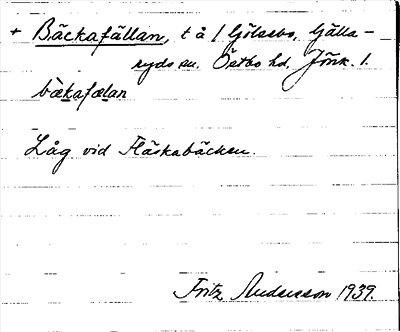 + Bäckafällan, t å 1 Gölsebo, Gälla-
ryds sn. Östbo hd, Jönk. l.
bækafælan
Låg vid Fläskabäcken.
Fritz Andersson 1939.